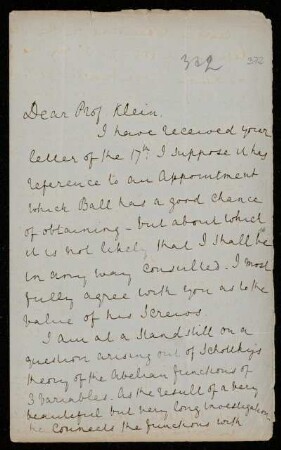 332
332
Dear Prof Klein.
I have received your
letter of the 17th I suppose it has
reference to an Appointment
which Ball has a good chance
of obtaining - but about which
it is not likely that I shall be
in any way consulted. I most
fully agree with you as to the
value of his Screws
I am at a standstill on a
question arising out of Schottky's
theory of the Abelian functions of
3 Variables. As the result of a very
beautiful but very long investigation
he connects the functions with